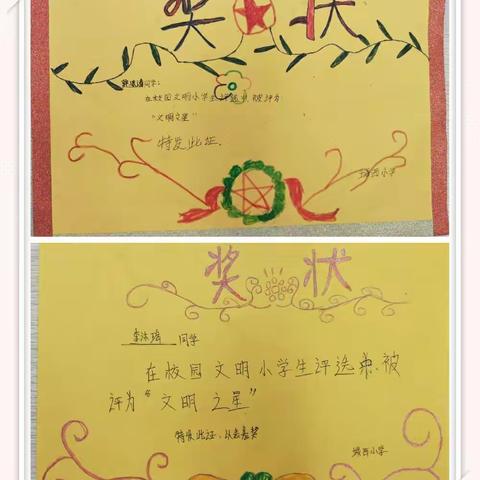 奖状
同学:
在校园文明小学生评选中,被评为
"文明之星"
特发此证.
城西小学
奖状
李沐瑶 同学
在校园文明小学生评选弟,被
评为"文明之星"
特发此证,以资嘉奖
城西小学